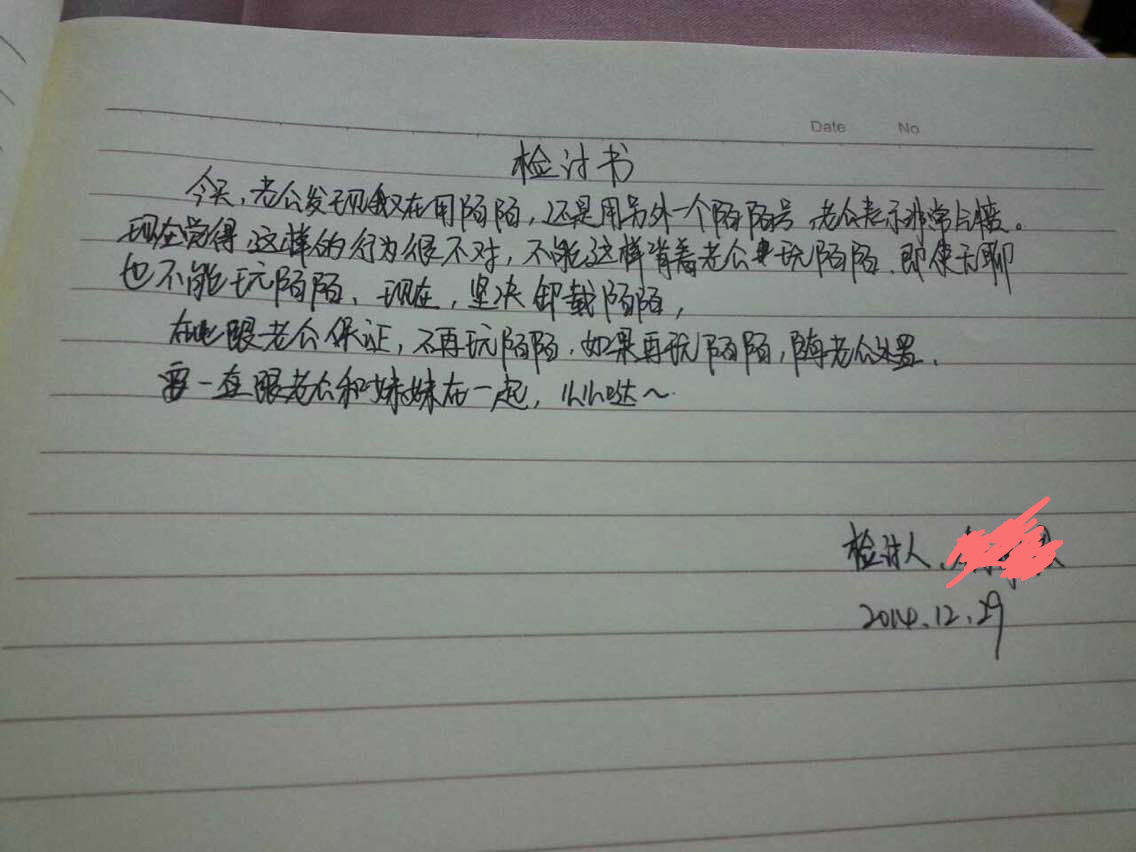 Date No
检讨书
今天，老公发现我又在用陌陌，还是用另外一个陌陌号，老公表示非常气愤。
现在觉得，这样的行为很不对，不能这样背着老公玩陌陌，即使无聊
也不能玩陌陌、现在，坚决卸载陌陌，
在此跟老公保证，不再玩陌陌．如果再玩陌陌，随老公处置．
要一直跟老公和妹妹在一起，么么哒～
检讨人、
2014.12.29